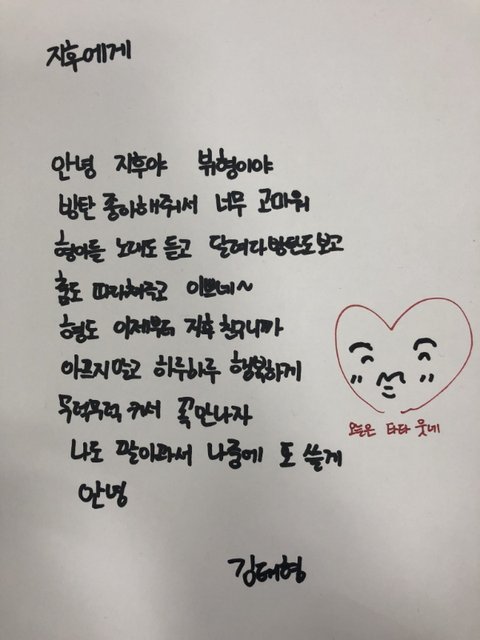 지후에게
안녕 지후야 뷔형이야
방탄 좋아해줘서 너무 고마워
형아들 노래도 듣고 달려라방탄도보고
춤도 따라춰주고 이쁘네~
형도 이제부터 지후 친구니까
아프지말고 하루하루 행복하게
무럭무럭 커서 꼭만나자
나도 말이
나중에 또 쓸게
안녕
오늘은 타타 웃네
김태형